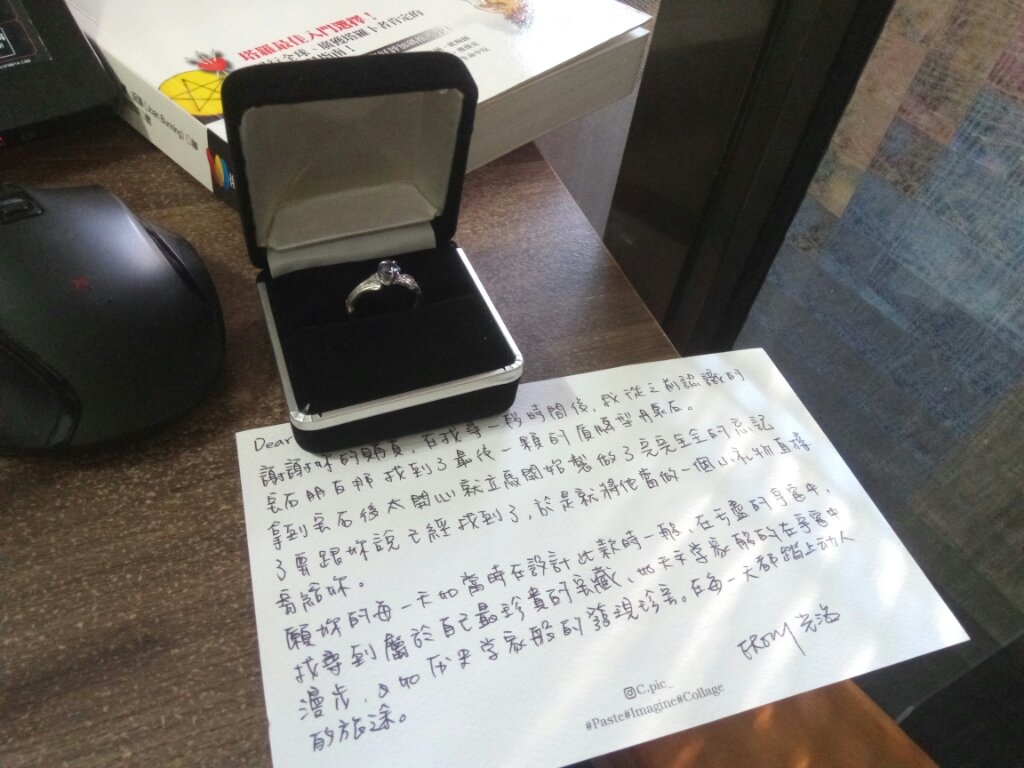 塔羅最佳入門選擇！
全球．廣獲塔羅卜者肯定的
指南！
(Joan Bunning)◎著
Dear
謝謝妳的購買，在找尋一輪時間後，我從之前認識的
完石朋友那找到了最後一顆的原礦型丹泉石。
拿到完石後太開心就立馬開始製做了完完全全的忘記
了要跟妳說已經找到了，於是就將他當做一個小禮物直接
寄給妳。
願妳的每一天如當時在設計此款時一般，在亏盡的宇宙中，
找尋到屬於自己最珍貴的寶藏、如天文學家般的在宇宙中
漫步、又如历史学家般的發現珍寶。在每一天都踏上动人
的旅途。
FROM
C.pic_
#Paste#Imagine#Collage